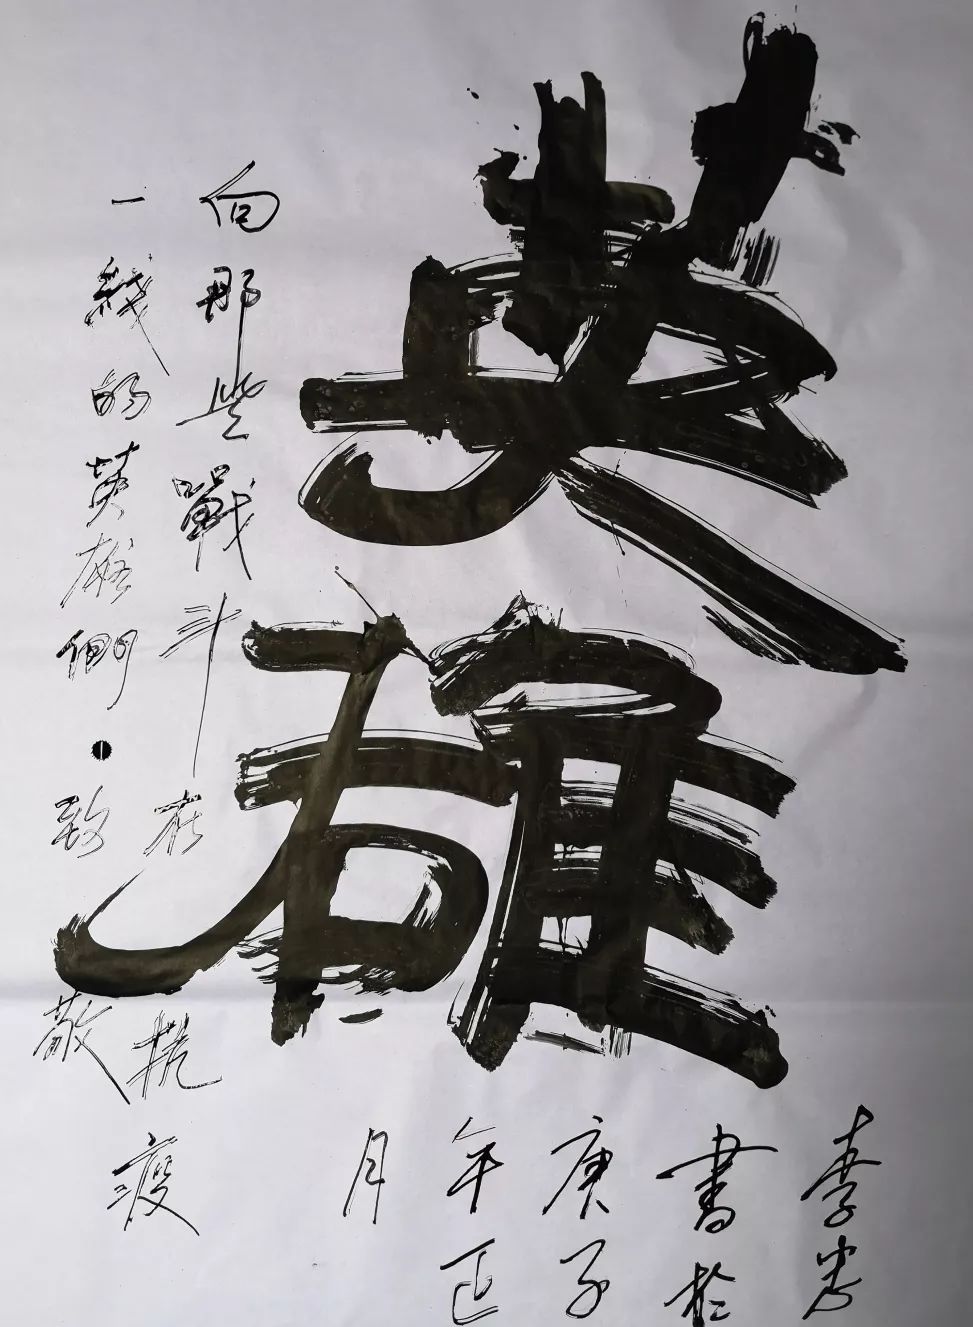 英雄
向那些戰斗在抗疫
一线的英雄們·致敬
李
書於
庚子
年正
月